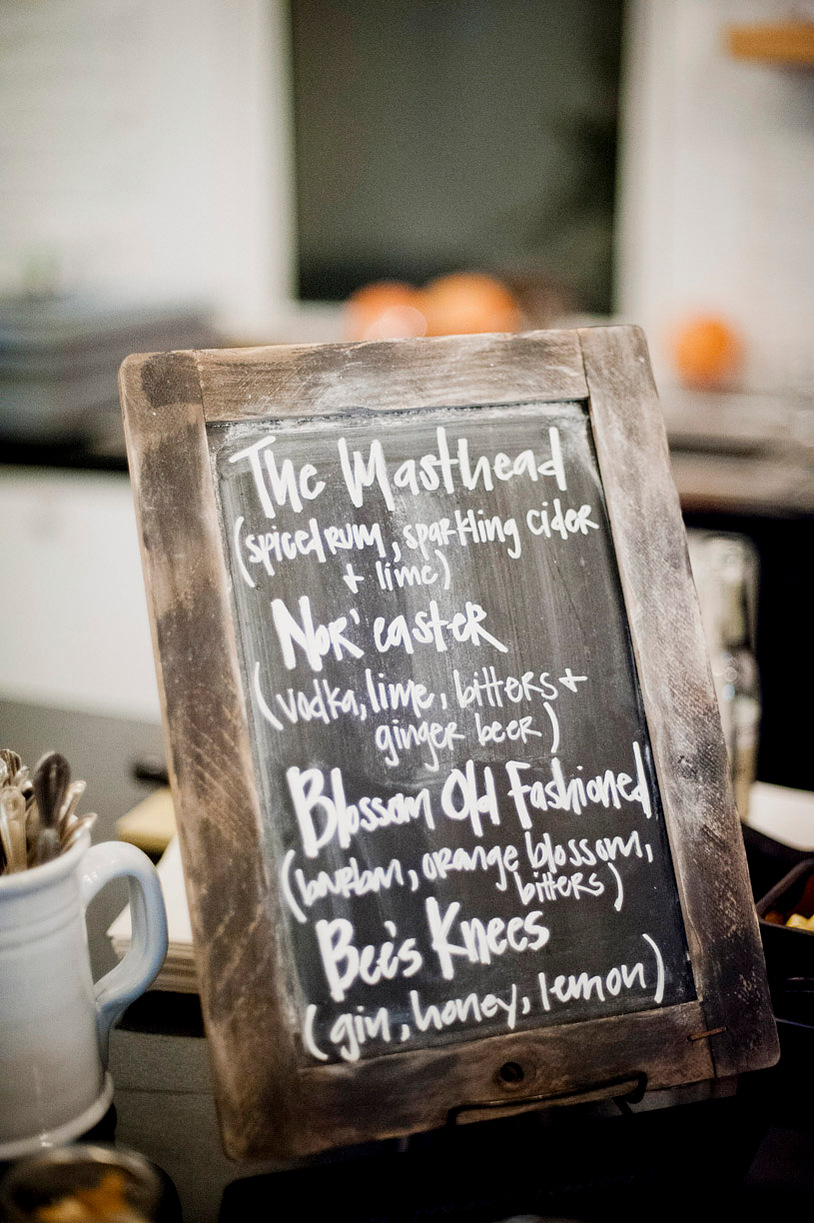 The Masthead
(spiced rum, sparkling cider
+ lime)
Nor'easter
(vodka, lime, bitters +
ginger beer)
Blossom Old Fashioned
(bourbon, orange blossom,
bitters)
Bee's Knees
(gin, honey, lemon)